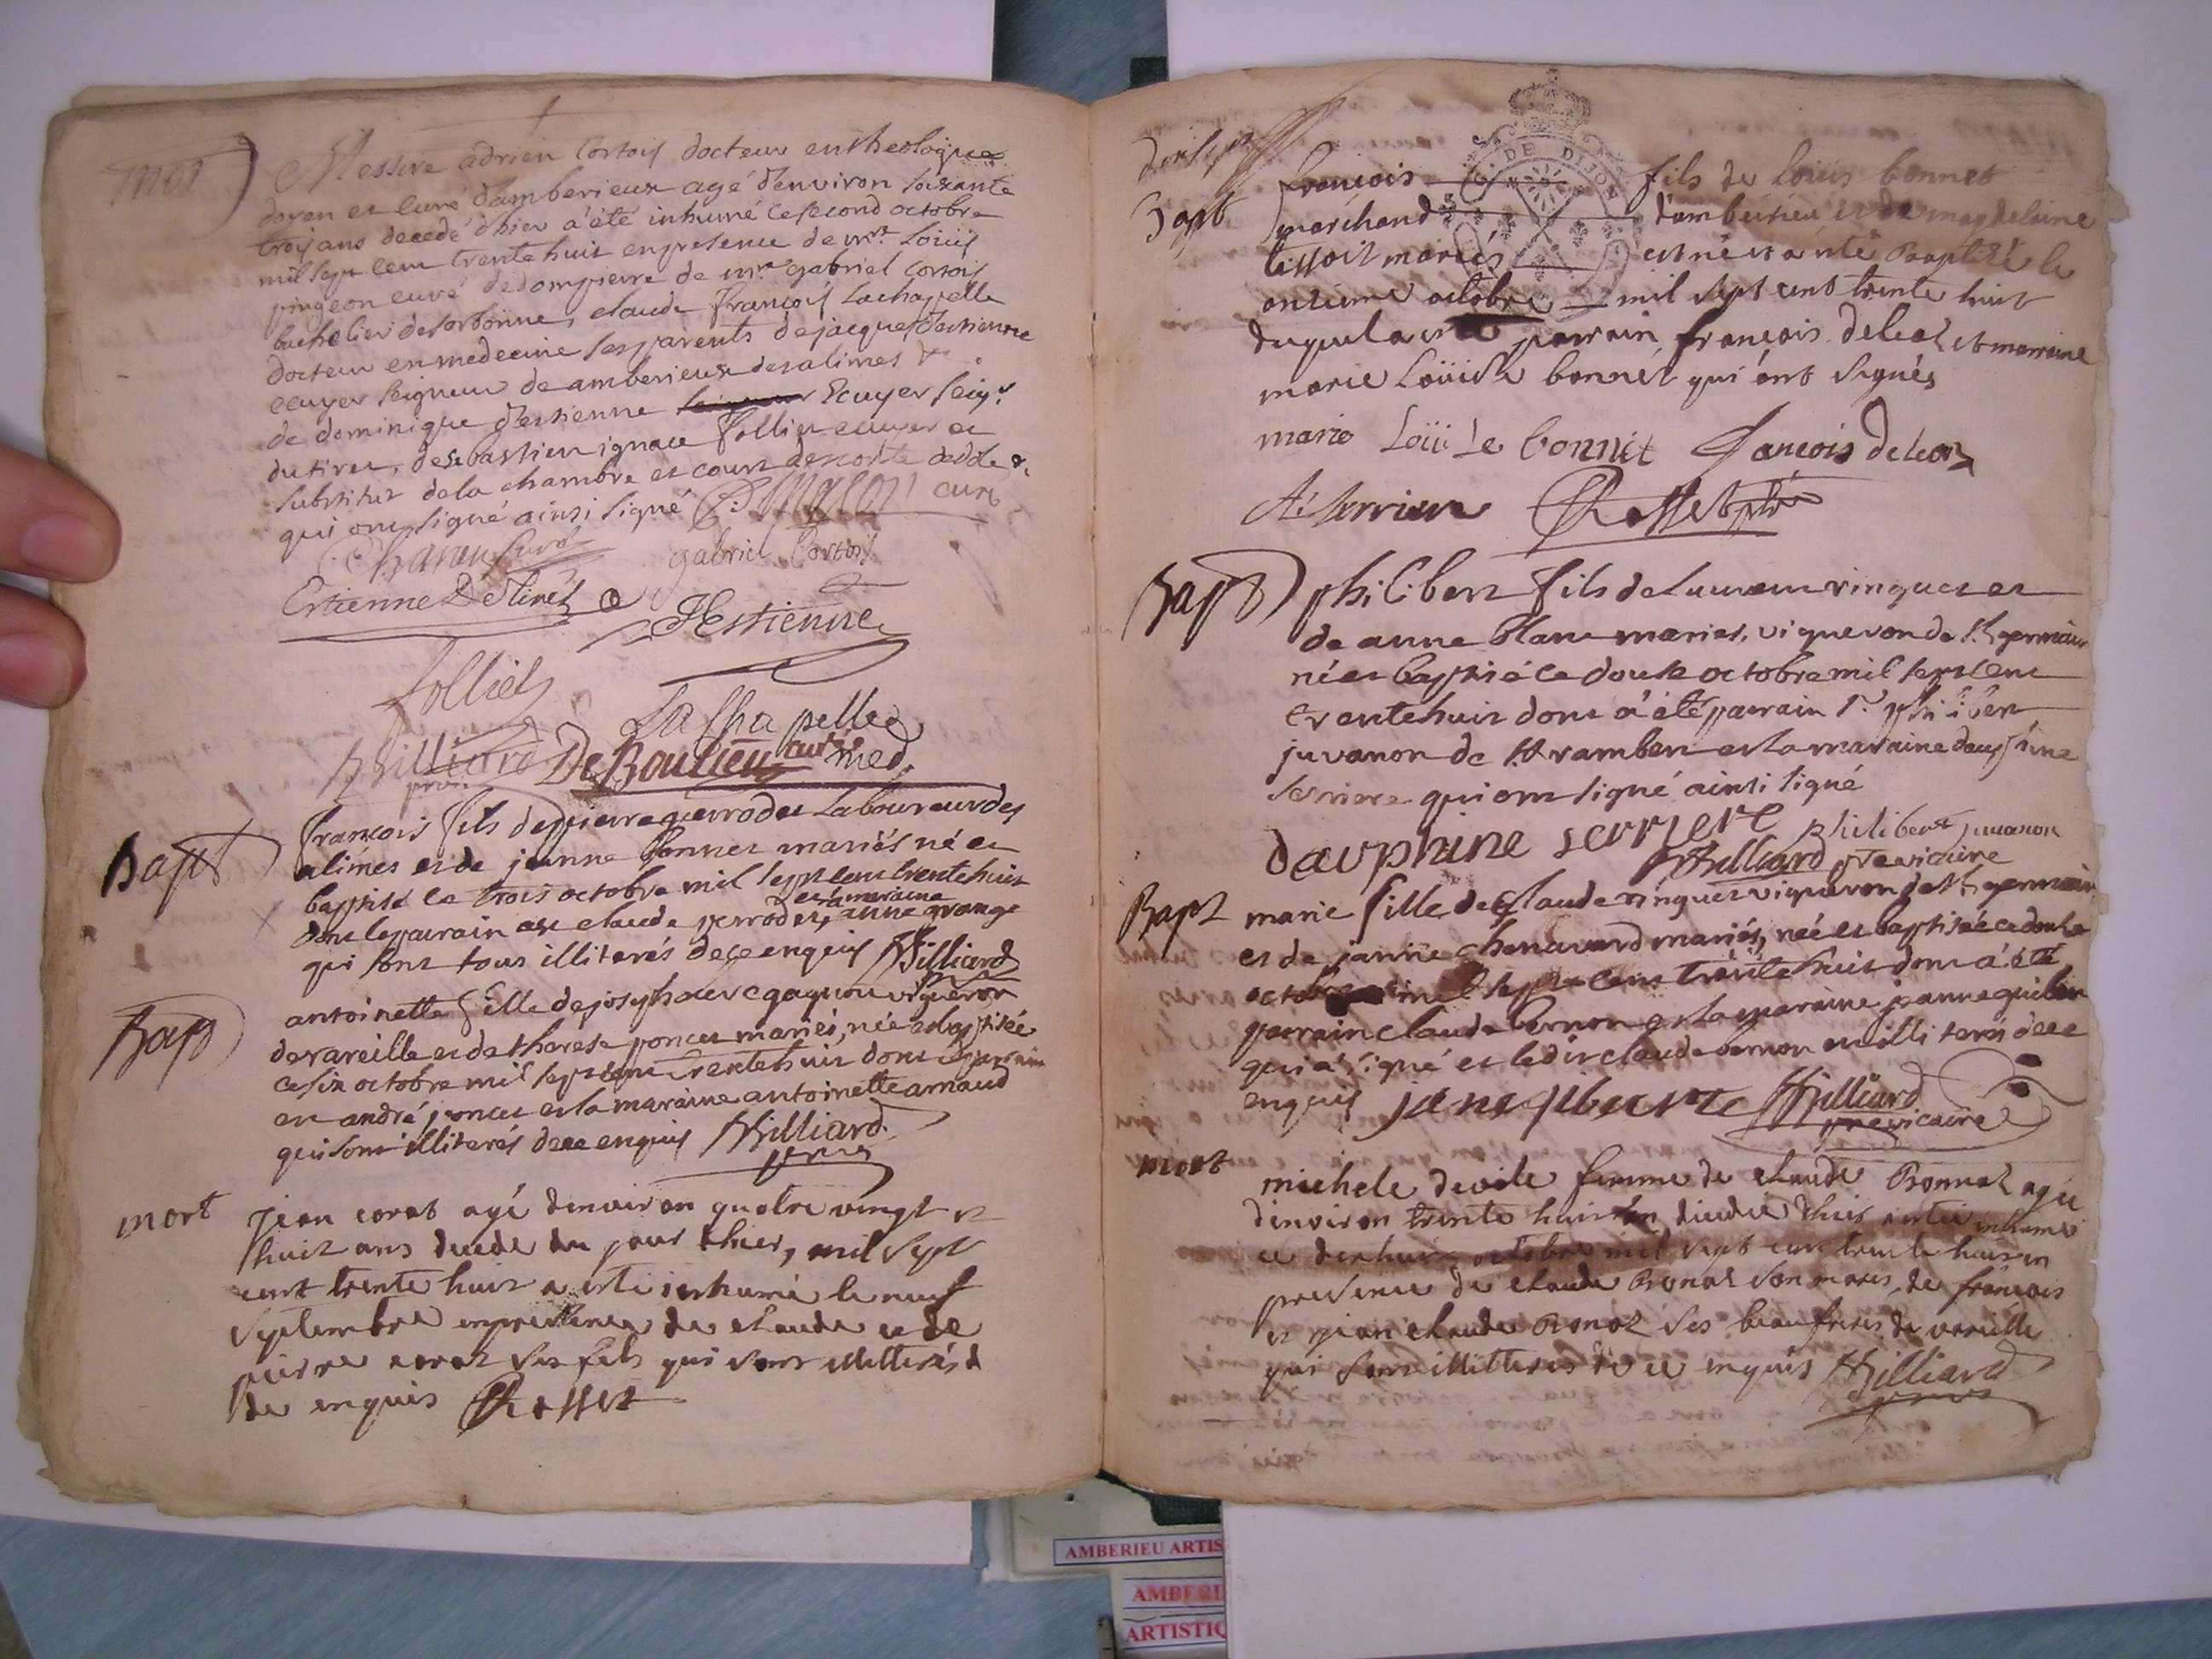 mort
Messire adrien Cortois docteur en theologie
doyen et curé d'amberieux agé d'environ soixante
trois ans decedé d'hier a été inhumé ce second octobre
mil sept cent trente huit en presence de mre Loüis
pingeon curé de dompierre de mre gabriel Cortois
bachelier de sorbonne, claude françois Lachapelle
docteur en medecine ses parents de jacques d'estienne
ecuyer seigneur de amberieux des alimes &c.
de dominique d'estienne Ecuyer seigr
du tiret, de sebastien ignace folliet ecuyer et
substitut de la chambre et cour
qui ont signé ainsi signé curé
gabriel Cortois
Estienne De tiret
J Estienne
folliet
La Cha pelle
med.
Billiard
De Boulieu curé
Bapt
françois fils de pierre guerrodet Laboureur des
alimes et de jeanne bonnet mariés né et
baptisé le trois octobre mil sept cent trente huit
et la maraine
dont le parain est claude perrodet, anne grange
qui sont tous illiterés de ce enquis Billiard
Bapt
antoinette fille de joseph gagnou vigneron
de vareille et de therese poncet mariés, née et baptisée
ce six octobre mil sept cent trente huit dont le parain
est andré poncet et la maraine antoinette arnaud
qui sont illiterés de ce enquis Billiard
mort
Jean corat agé denviron quatre vingt et
huit ans decede du jour dhier, mil sept
cent trente huit a esté inhumé le neuf
Septembre en presence de claude et de
pierre corat ses fils qui sont illitterés d
de enquis Rosset
Bapt
DE DIJON
françois fils de Loüis bonnet
marchand d'amberieu et de magdelaine
tissot mariés est né et a été Baptisé le
onzieme octobre mil sept cent trente huit
duquel a esté parrain françois deleaz et marraine
marie Loüise bonnet qui ont signés
marie Loüi Le bonnit françois deleaz
Rosset
Bapt
philibert fils de Laurent vinguet et
de anne blanc mariés, vigneron de St germain
né et baptisé ce douse octobre mil sept cent
trente huit dont a été parain Sr philibert
juvanon de St rambert et la maraine dauphine
serriere qui ont signé ainsi signé
dauphine serriere philibert juvanon
Billiard ptre vicaire
Bapt
marie fille de claude vinguet vigneron de St germain
et de janne chenavard mariés, née et baptisée ce douse
octobre mil sept cent trente huit dont a été
parrain claude bernon et la maraine jeanne guibert
qui a signé et ledit claude bernon illiteré de ce
enquis Billiard
ptre vicaire
mort
michele devile femme de claude Bonnaz agée
d'environ trente huit an decedée dhier a esté inhumé
ce dixhuit octobre mil sept cent trente huit en
presence de claude Bonaz son maris, de françois
et jean claude Bonaz ses beaufreres de vareille
qui sont illitterés de ce enquis Billiard